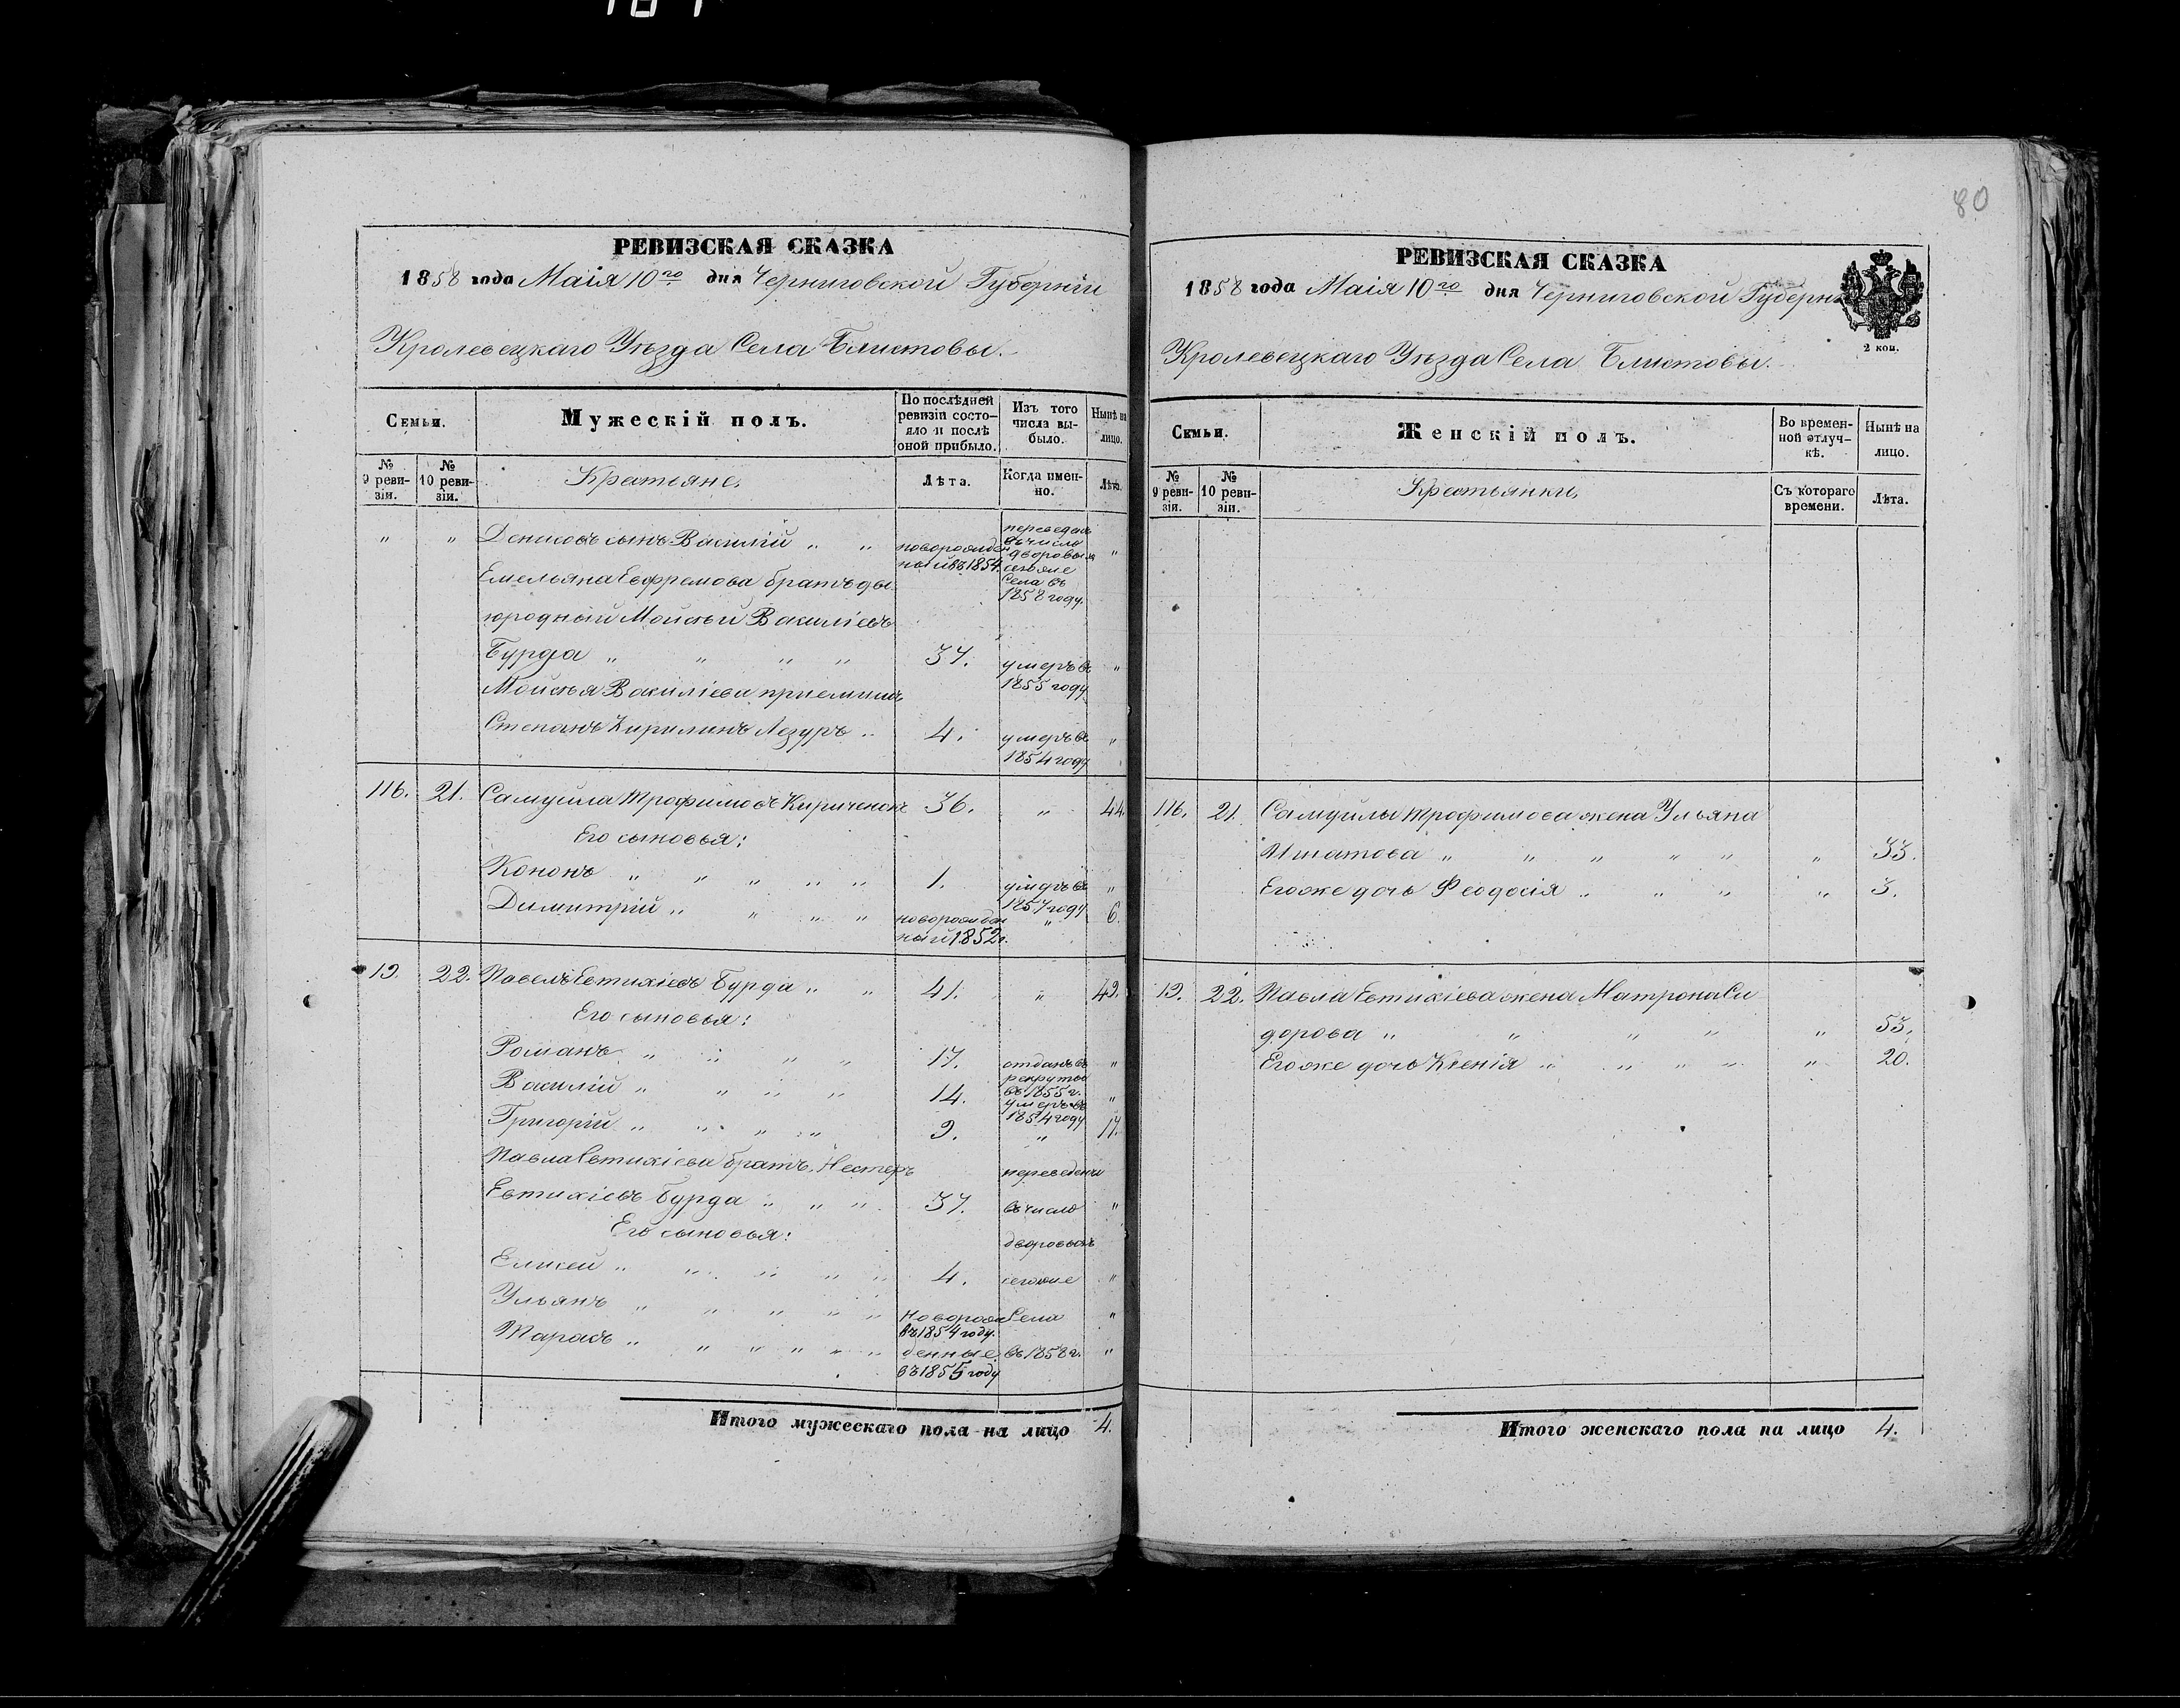 РЕВИЗСКАЯ СКАЗКА
1858 года Маія 10го дня Черниговской Губерніи
Кролевецкаго Уѣзда Села Блистовы.
Семьи.
Мужескій полъ.
По послѣдней ревизіи состояло и послѣ оной прибыло.
Изъ того числа выбыло.
Нынѣ на лицо.
№ 9 ревизіи.
№ 10 ревизіи.
Крестьяне.
Лѣта.
Когда именно.
Лѣта.
" " Денисовъ сынъ Василій " " новорожденный въ 1854. переведенъ въ число дворовыхъ сегоже Села въ 1858 году. "
Емельяна Евфремова братъ дв
юродный Мойсѣй Василіевъ
Бурда " " " " 37. умеръ въ 1855 году "
Мойсѣя Василіева приемышъ
Степанъ Кирилинъ " 4. умеръ въ 1854 году "
116. 21. Самуила Трофимовъ Кириченокъ 36. " 44.
Его сыновья:
Кононъ " " " " " 1. умеръ въ 1857 году "
Димитрій " " " " новорожденный 1852г. " 6.
19. 22. Павелъ Евтихіевъ Бурда " " 41. " 49.
Его сыновья:
Романъ " " " " 17. отданъ въ рекруты въ 1855 г. "
Василій " " " " 14. умеръ въ 1854 году "
Григорій " " " " 9. " 17.
Павла Евтихіева братъ Нестеръ переведены
Евтихіевъ Бурда " " " 37. въ число "
Его сыновья: дворовыхъ
Елисей " " " " " 4. сегоже "
Ульянъ " " " " " Новорож Села "
въ 1854 году.
Тарасъ " " " " " " денные въ 1858 г. "
въ 1855 году
Итого мужескаго пола на лицо 4.
80
РЕВИЗСКАЯ СКАЗКА
1858 года Маія 10го дня Черниговской Губерні
2 коп.
Кролевецкаго Уѣзда Села Блистовы.
Семьи.
Женскій полъ.
Во временной отлучкѣ.
Нынѣ на лицо.
№ 9 ревизіи.
№ 10 ревизіи.
Крестьянки.
Съ котораго времени.
Лѣта.
116. 21. Самуилы Трофимова жена Ульяна
Игнатова " " " " " " 33.
Егоже дочь Феодосія " " " " 3.
19. 22. Павла Евтихіева жена Матрона Си
дорова " " " " " 53.
Егоже дочь Ксенія " " " " " 20.
Итого женскаго пола на лицо 4.